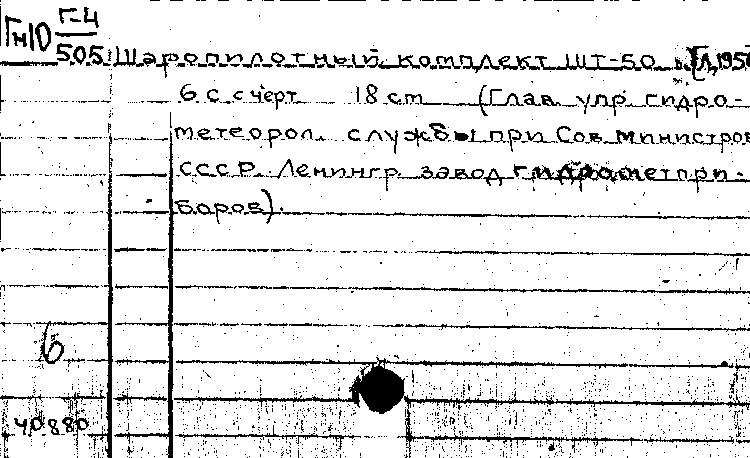 Гм10 Г-4
505
Шаропилотный комплект ШТ-50. [Л, 1950
6 с с черт 18 cm (Глав. упр. гидро-
метеорол. службы при Сов. министров
СССР. Ленингр. завод гидрометпри-
боров).
6
40880